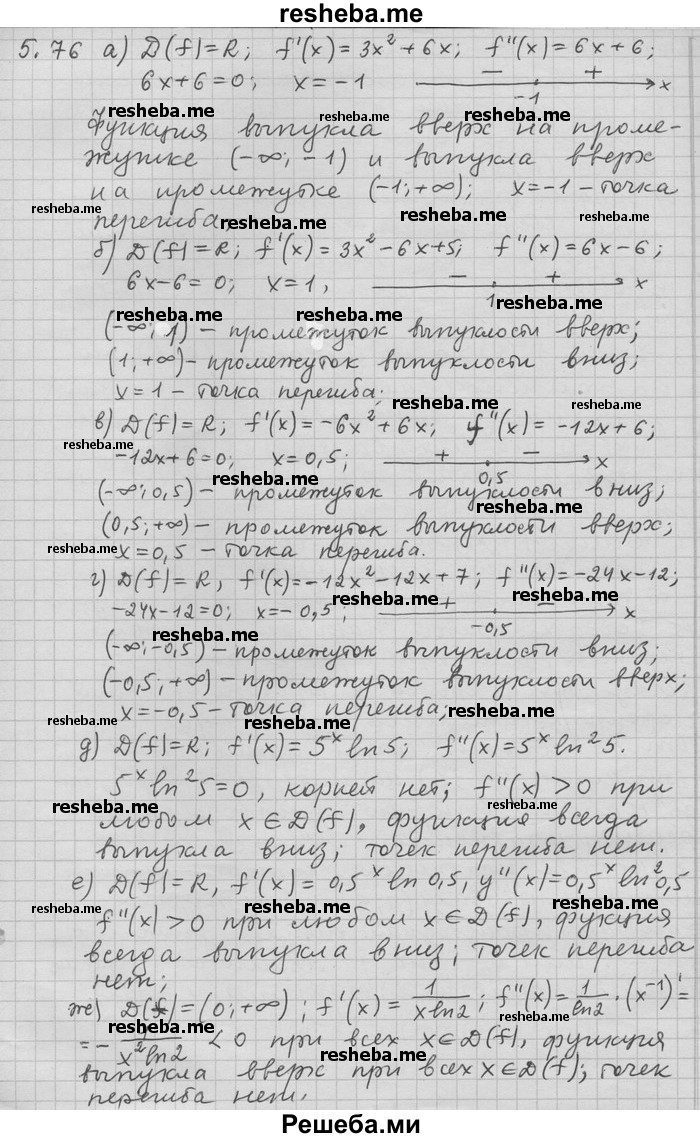 resheba.me
5.76 а) D(f)=R; f'(x)=3x²+6x; f''(x)=6x+6;
6x+6=0; x=-1 − + -1 x
resheba.me resheba.me
Функция выпукла вверх на проме-
жутке (-∞; -1) и выпукла вверх
resheba.me resheba.me
на промежутке (-1; +∞); x=-1 - точка
resheba.me resheba.me resheba.me
перегиба;
б) D(f)=R; f'(x)=3x²-6x+5; f''(x)=6x-6;
6x-6=0; x=1, − + 1 x
resheba.me resheba.me resheba.me
(-∞; 1) - промежуток выпуклости вверх;
(1; +∞) - промежуток выпуклости вниз;
x=1 - точка перегиба;
resheba.me resheba.me resheba.me
в) D(f)=R; f'(x)=-6x²+6x; f''(x)=-12x+6;
resheba.me
-12x+6=0; x=0,5; + − 0,5 x
resheba.me
(-∞; 0,5) - промежуток выпуклости вниз;
resheba.me
(0,5; +∞) - промежуток выпуклости вверх;
resheba.me
x=0,5 - точка перегиба.
resheba.me
г) D(f)=R, f'(x)=-12x²-12x+7; f''(x)=-24x-12;
resheba.me
-24x-12=0; x=-0,5; + − -0,5 x
resheba.me
(-∞; -0,5) - промежуток выпуклости вниз;
(-0,5; +∞) - промежуток выпуклости вверх;
x=-0,5 - точка перегиба;
resheba.me resheba.me resheba.me
д) D(f)=R; f'(x)=5ˣ ln 5; f''(x)=5ˣ ln²5.
5ˣ ln²5=0, корней нет; f''(x)>0 при
resheba.me resheba.me
любом x∈D(f), функция всегда
выпукла вниз; точек перегиба нет.
resheba.me
е) D(f)=R, f'(x)=0,5ˣ ln 0,5, y''(x)=0,5ˣ ln²0,5
resheba.me resheba.me resheba.me
f''(x)>0 при любом x∈D(f), функция
всегда выпукла вниз; точек перегиба
нет;
resheba.me
ж) D(f)=(0; +∞); f'(x)=1/(x ln2); f''(x)=1/ln2·(x⁻¹)'=
resheba.me resheba.me
=-1/(x² ln2) <0 при всех x∈D(f), функция
resheba.me resheba.me
выпукла вверх при всех x∈D(f); точек
перегиба нет.
Решеба.ми